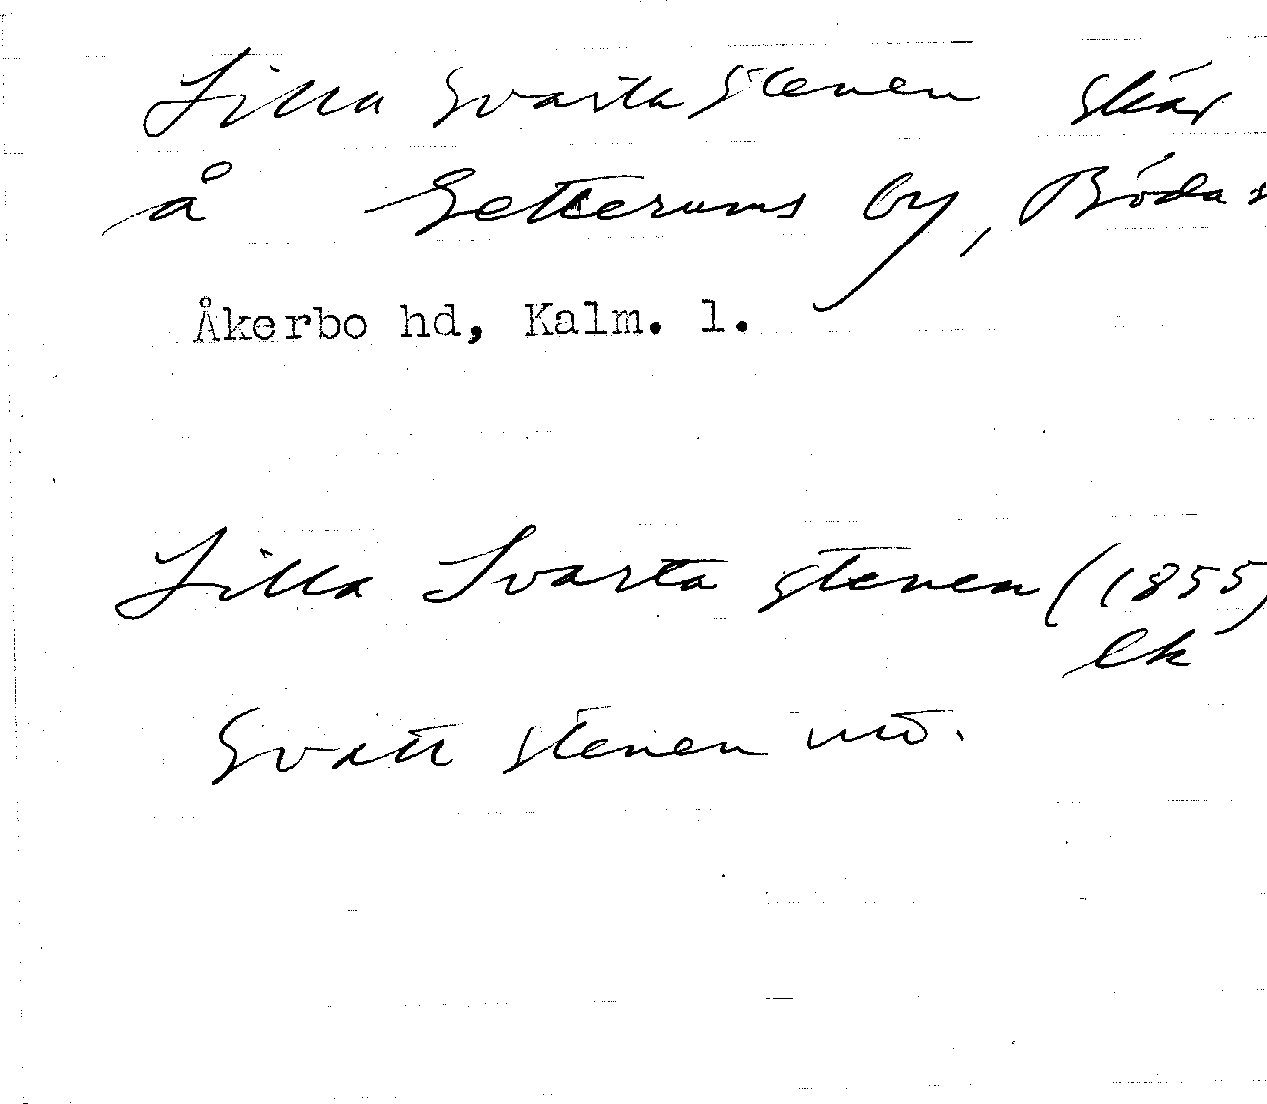 Lilla Svarta stenen skär
å Getterums by, Böda s
Åkerbo hd, Kalm. l.
Lilla Svarta stenen (1855)
lk
Svarta stenen